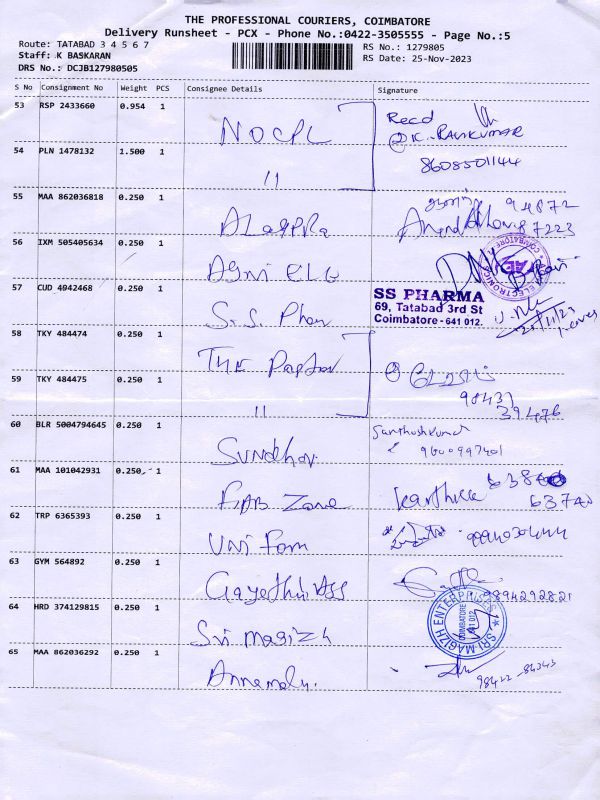 THE PROFESSIONAL COURIERS, COIMBATORE
Delivery Runsheet - PCX - Phone No.:0422-3505555 - Page No.:5
Route: TATABAD 3 4 5 6 7 RS No.: 1279805
Staff: K BASKARAN RS Date: 25-Nov-2023
DRS No.: DCJB127980505
S No Consignment No Weight PCS Consignee Details Signature
53 RSP 2433660 0.954 1 NOCPL Recd
K. RAVIKUMAR
54 PLN 1478132 1.500 1 11 8608501144
55 MAA 862036818 0.250 1 94872
7223
56 IXM 505405634 0.250 1 Agni ELC
ELECTRONICS COIMBATORE
57 CUD 4942468 0.250 1 S.S. Phar
SS PHARMA
69, Tatabad 3rd St
Coimbatore - 641 012.
25/11/23
58 TKY 484474 0.250 1 THE
59 TKY 484475 0.250 1 11 98431
39476
60 BLR 5004794645 0.250 1 Santhoshkumar
9600997401
61 MAA 101042931 0.250 1 FAB Zone Karthick
63740
62 TRP 6365393 0.250 1 UNI Form
63 GYM 564892 0.250 1 9894292821
64 HRD 374129815 0.250 1 Sri Magizh
SRI MAGIZH ENTERPRISES COIMBATORE 641 012
65 MAA 862036292 0.250 1 98422-84343